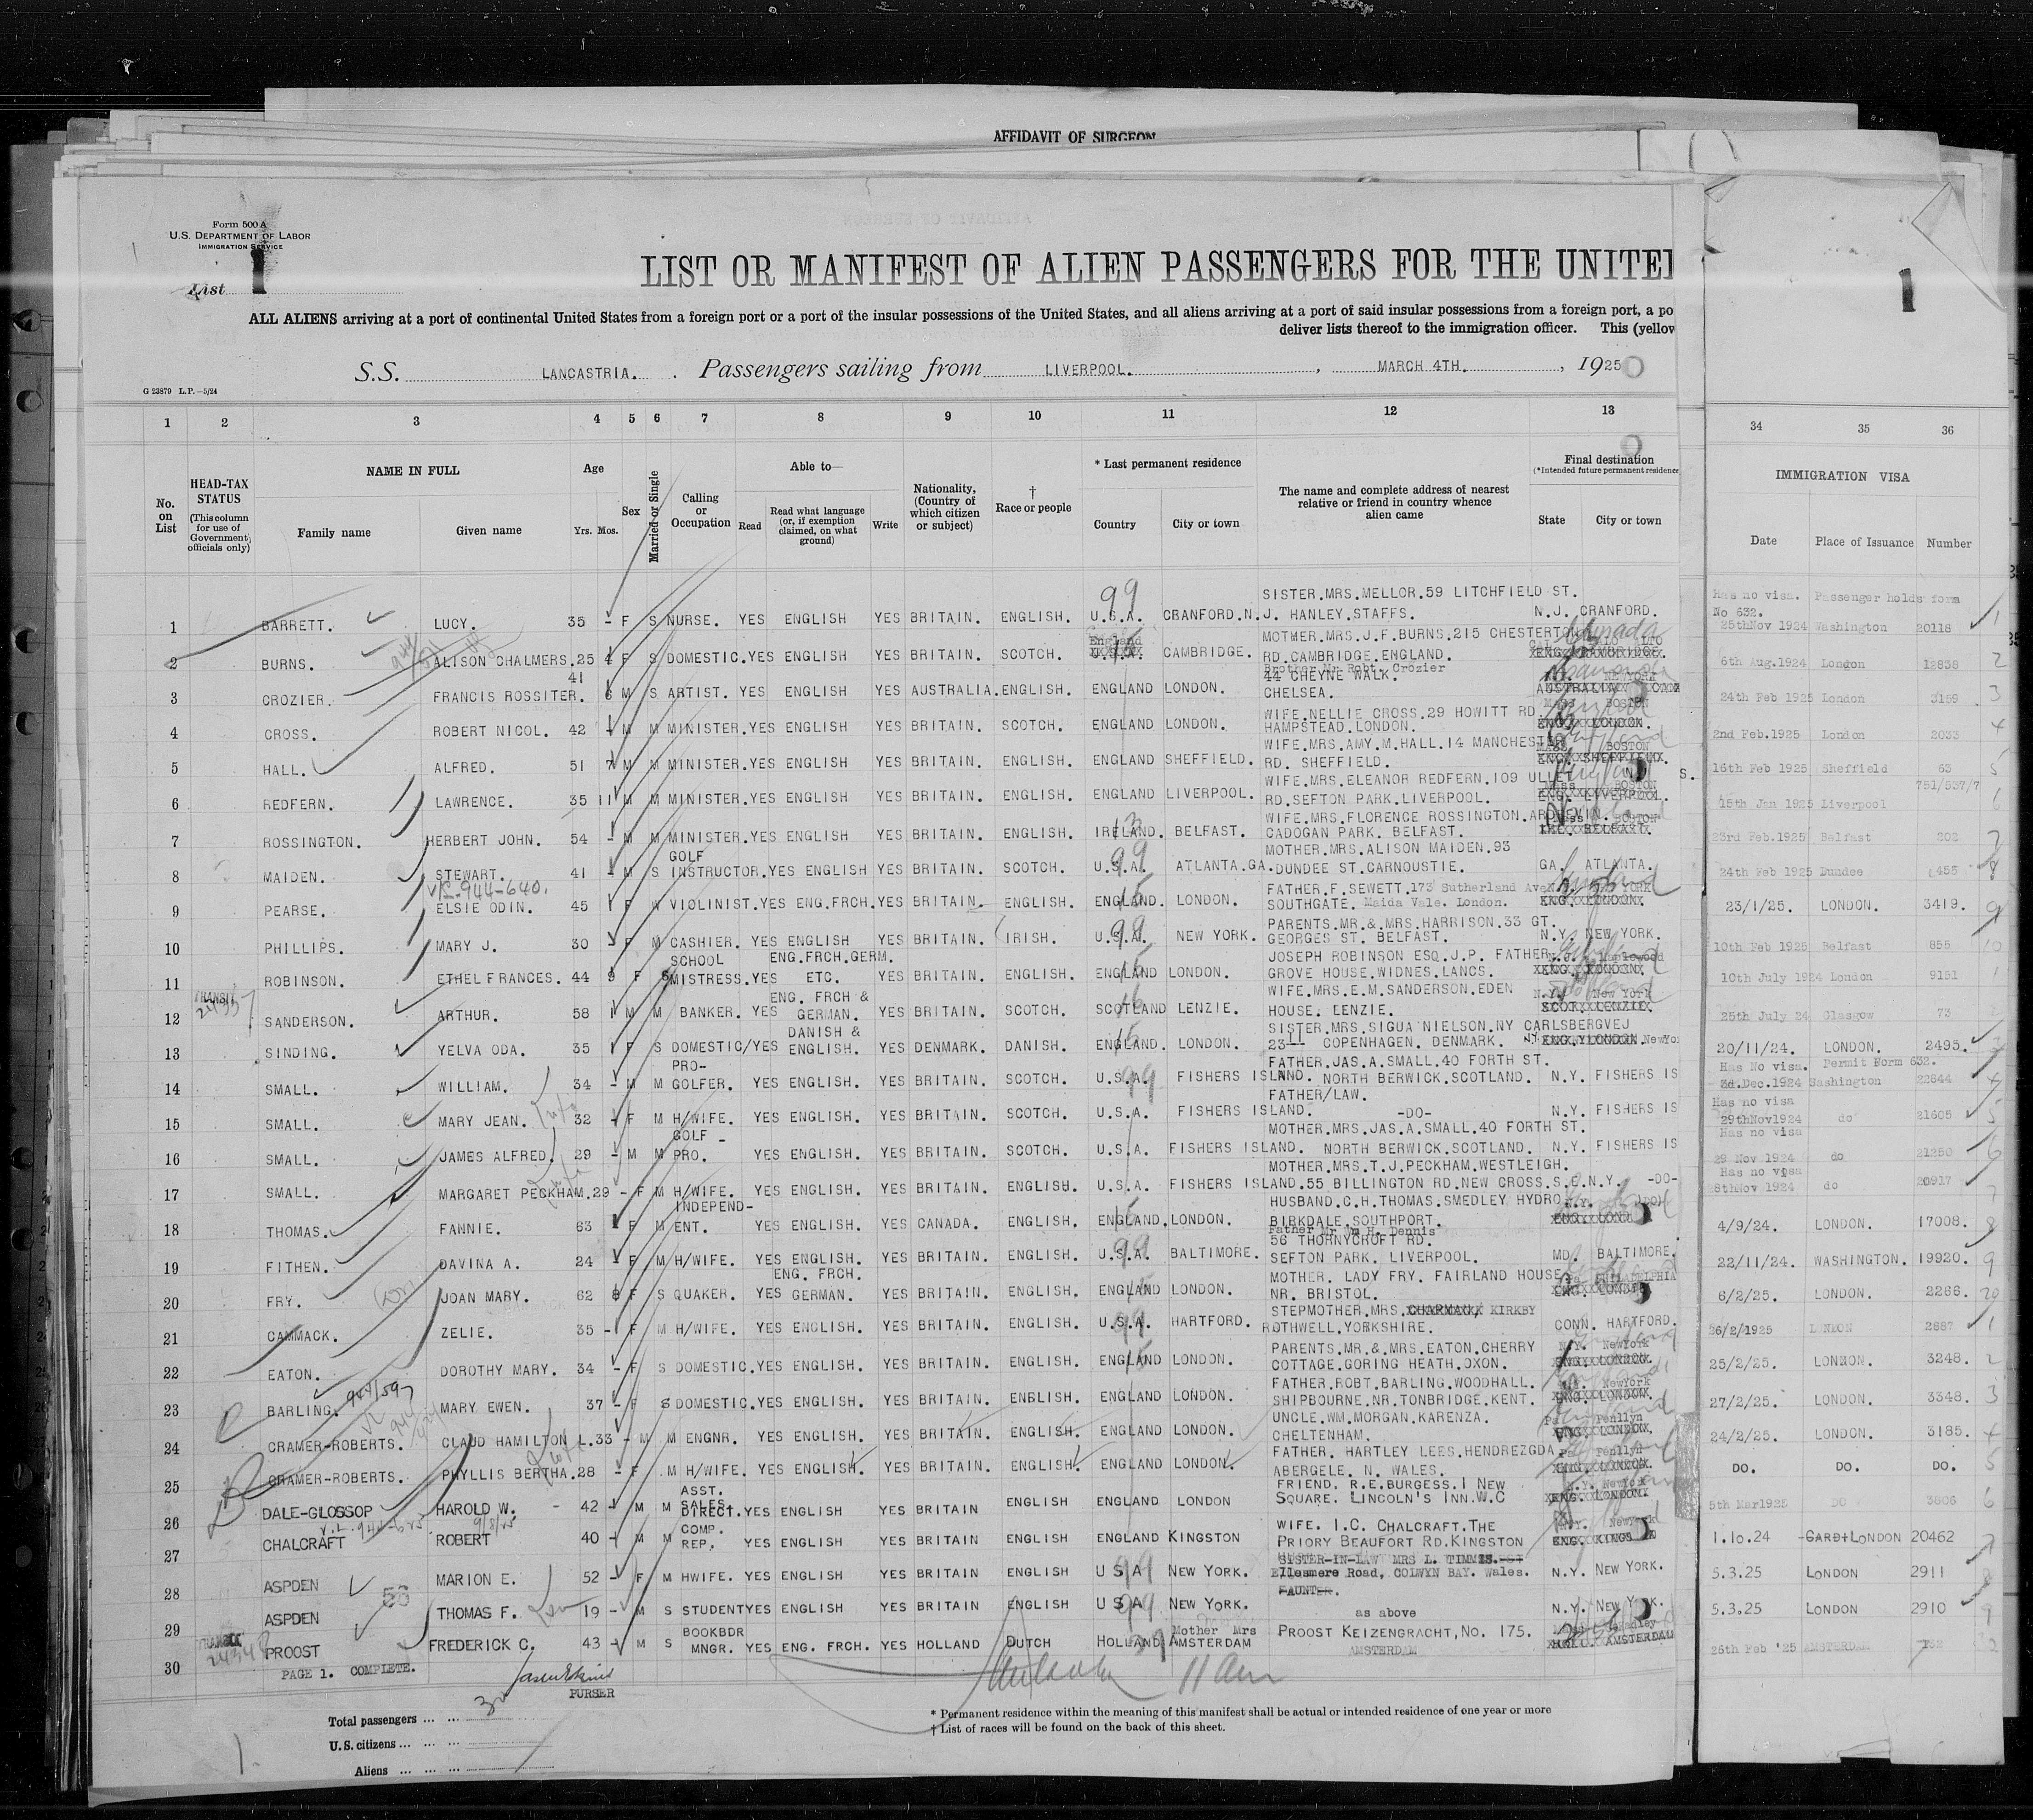 AFFIDAVIT OF SURGEON
Form 500 A
U.S. DEPARTMENT OF LABOR
IMMIGRATION SERVICE
List 1
LIST OR MANIFEST OF ALIEN PASSENGERS FOR THE UNITED
ALL ALIENS arriving at a port of continental United States from a foreign port or a port of the insular possessions of the United States, and all aliens arriving at a port of said insular possessions from a foreign port, a po
deliver lists thereof to the immigration officer. This (yellow
S.S. LANCASTRIA. Passengers sailing from LIVERPOOL. , MARCH 4TH. , 1925
G 23879 L.P.—5/24
1 2 3 4 5 6 7 8 9 10 11 12 13
No. on List
HEAD-TAX STATUS (This column for use of Government officials only)
NAME IN FULL Family name Given name
Age Yrs. Mos.
Sex
Married or Single
Calling or Occupation
Able to— Read Read what language (or, if exemption claimed, on what ground) Write
Nationality, (Country of which citizen or subject)
† Race or people
* Last permanent residence Country City or town
The name and complete address of nearest relative or friend in country whence alien came
Final destination (*Intended future permanent residence State City or town
1
34 35 36
IMMIGRATION VISA
Date Place of Issuance Number
1 BARRETT. LUCY. 35 - F S NURSE. YES ENGLISH YES BRITAIN. ENGLISH. U.S.A. CRANFORD.N.J. SISTER.MRS.MELLOR.59 LITCHFIELD ST. HANLEY.STAFFS. N.J. CRANFORD. Has no visa. Passenger holds form No 632. 25thNov 1924 Washington 20118
2 BURNS. ALISON CHALMERS. 25 4 F S DOMESTIC. YES ENGLISH YES BRITAIN. SCOTCH. England CAMBRIDGE. MOTHER.MRS.J.F.BURNS.215 CHESTERTON RD.CAMBRIDGE.ENGLAND. 6th Aug.1924 London 12838
3 CROZIER. FRANCIS ROSSITER. 41 6 M S ARTIST. YES ENGLISH YES AUSTRALIA. ENGLISH. ENGLAND LONDON. Brother Mr Robt. Crozier 44 CHEYNE WALK. CHELSEA. NEWYORK 24th Feb 1925 London 3159
4 CROSS. ROBERT NICOL. 42 M M MINISTER. YES ENGLISH YES BRITAIN. SCOTCH. ENGLAND LONDON. WIFE.NELLIE CROSS.29 HOWITT RD HAMPSTEAD.LONDON. MASS BOSTON 2nd Feb.1925 London 2033
5 HALL. ALFRED. 51 7 M M MINISTER. YES ENGLISH YES BRITAIN. ENGLISH. ENGLAND SHEFFIELD. WIFE.MRS.AMY.M.HALL.14 MANCHESTER RD. SHEFFIELD. MASS BOSTON 16th Feb 1925 Sheffield 63
6 REDFERN. LAWRENCE. 35 11 M M MINISTER. YES ENGLISH YES BRITAIN. ENGLISH. ENGLAND LIVERPOOL. WIFE.MRS.ELEANOR REDFERN.109 ULLET RD.SEFTON PARK.LIVERPOOL. Mass BOSTON 15th Jan 1925 Liverpool 751/537/7
7 ROSSINGTON. HERBERT JOHN. 54 - M M MINISTER. YES ENGLISH YES BRITAIN. ENGLISH. IRELAND. BELFAST. WIFE.MRS.FLORENCE ROSSINGTON. CADOGAN PARK. BELFAST. BOSTON 23rd Feb.1925 Belfast 202
8 MAIDEN. STEWART. 41 - M S GOLF INSTRUCTOR. YES ENGLISH YES BRITAIN. SCOTCH. U.S.A. ATLANTA.GA. MOTHER.MRS.ALISON MAIDEN.93 DUNDEE ST.CARNOUSTIE. GA. ATLANTA. 24th Feb 1925 Dundee 455
9 PEARSE. ELSIE ODIN. 45 1 F W VIOLINIST. YES ENG.FRCH. YES BRITAIN. ENGLISH. ENGLAND. LONDON. FATHER.F.SEWETT.173 Sutherland Ave SOUTHGATE. Maida Vale. London. 23/1/25. LONDON. 3419.
10 PHILLIPS. MARY J. 30 - F M CASHIER. YES ENGLISH YES BRITAIN. IRISH. U.S.A. NEW YORK. PARENTS.MR.& MRS.HARRISON.33 GT. GEORGES ST. BELFAST. N.Y. NEW YORK. 10th Feb 1925 Belfast 855
11 ROBINSON. ETHEL FRANCES. 44 9 F S SCHOOL MISTRESS. YES ENG.FRCH.GERM. ETC. YES BRITAIN. ENGLISH. ENGLAND LONDON. JOSEPH ROBINSON ESQ.J.P. FATHER GROVE HOUSE.WIDNES.LANCS. Maplewood 10th July 1924 London 9151
12 TRANSIT SANDERSON. ARTHUR. 58 1 M M BANKER. YES ENG. FRCH & GERMAN. YES BRITAIN. SCOTCH. SCOTLAND LENZIE. WIFE.MRS.E.M.SANDERSON.EDEN HOUSE. LENZIE. N.Y. New York 25th July 24 Glasgow 73
13 SINDING. YELVA ODA. 35 1 F S DOMESTIC/ YES DANISH & ENGLISH. YES DENMARK. DANISH. ENGLAND. LONDON. SISTER.MRS.SIGUA NIELSON.NY CARLSBERGVEJ 23 II COPENHAGEN. DENMARK. 20/11/24. LONDON. 2495.
14 SMALL. WILLIAM. 34 - M M PRO- GOLFER. YES ENGLISH. YES BRITAIN. SCOTCH. U.S.A. FISHERS ISLAND. FATHER.JAS.A.SMALL.40 FORTH ST. NORTH BERWICK.SCOTLAND. N.Y. FISHERS IS Has No visa. Permit Form 632. 3d.Dec.1924 Washington 22844
15 SMALL. MARY JEAN. 32 - F M H/WIFE. YES ENGLISH. YES BRITAIN. SCOTCH. U.S.A. FISHERS ISLAND. FATHER/LAW. -DO- N.Y. FISHERS IS Has no visa 29thNov1924 do 21605
16 SMALL. JAMES ALFRED. 29 - M M GOLF - PRO. YES ENGLISH. YES BRITAIN. SCOTCH. U.S.A. FISHERS ISLAND. MOTHER.MRS.JAS.A.SMALL.40 FORTH ST. NORTH BERWICK.SCOTLAND. N.Y. FISHERS IS Has no visa 29 Nov 1924 do 21250
17 SMALL. MARGARET PECKHAM. 29 - F M H/WIFE. YES ENGLISH. YES BRITAIN. ENGLISH. U.S.A. FISHERS ISLAND. MOTHER.MRS.T.J.PECKHAM.WESTLEIGH. 55 BILLINGTON RD.NEW CROSS.S.E. N.Y. -DO- Has no visa 28thNov 1924 do 20917
18 THOMAS. FANNIE. 63 F M INDEPEND- ENT. YES ENGLISH. YES CANADA. ENGLISH. ENGLAND. LONDON. HUSBAND.C.H.THOMAS.SMEDLEY HYDRO BIRKDALE.SOUTHPORT. N.Y. 4/9/24. LONDON. 17008.
19 FITHEN. DAVINA A. 24 - F M H/WIFE. YES ENGLISH. YES BRITAIN. ENGLISH. U.S.A. BALTIMORE. Father Mr Jm H. Dennis 56 THORNYCROFT RD. SEFTON PARK. LIVERPOOL. MD. BALTIMORE. 22/11/24. WASHINGTON. 19920.
20 FRY. JOAN MARY. 62 8 F S QUAKER. YES ENG. FRCH. GERMAN. YES BRITAIN. ENGLISH. ENGLAND LONDON. MOTHER. LADY FRY. FAIRLAND HOUSE NR. BRISTOL. 6/2/25. LONDON. 2266.
21 CAMMACK. ZELIE. 35 - F M H/WIFE. YES ENGLISH. YES BRITAIN. ENGLISH. U.S.A. HARTFORD. STEPMOTHER.MRS. KIRKBY ROTHWELL.YORKSHIRE. CONN. HARTFORD. 26/2/1925 LONDON 2887
22 EATON. DOROTHY MARY. 34 - F S DOMESTIC. YES ENGLISH. YES BRITAIN. ENGLISH. ENGLAND LONDON. PARENTS.MR.& MRS.EATON.CHERRY COTTAGE.GORING HEATH.OXON. N.Y. NewYork 25/2/25. LONNON. 3248.
23 BARLING. MARY EWEN. 37 - F S DOMESTIC. YES ENGLISH. YES BRITAIN. ENBLISH. ENGLAND LONDON. FATHER.ROBT.BARLING.WOODHALL. SHIPBOURNE.NR.TONBRIDGE.KENT. NewYork 27/2/25. LONDON. 3348.
24 CRAMER-ROBERTS. CLAUD HAMILTON L. 33 - M M ENGNR. YES ENGLISH. YES BRITAIN. ENGLISH. ENGLAND LONDON. UNCLE.WM.MORGAN.KARENZA. CHELTENHAM. Pa Penllyn 24/2/25. LONDON. 3185.
25 CRAMER-ROBERTS. PHYLLIS BERTHA. 28 - F M H/WIFE. YES ENGLISH. YES BRITAIN. ENGLISH. ENGLAND LONDON. FATHER. HARTLEY LEES.HENDREZGDA ABERGELE. N. WALES. Pa Penllyn DO. DO. DO.
26 DALE-GLOSSOP HAROLD W. - 42 M M ASST. SALES. DIRECT. YES ENGLISH YES BRITAIN ENGLISH ENGLAND LONDON FRIEND. R.E.BURGESS.I NEW SQUARE. LINCOLN'S INN.W.C N.Y. NewYork 5th Mar1925 DO 3806
27 CHALCRAFT ROBERT 40 - M M COMP. REP. YES ENGLISH YES BRITAIN ENGLISH ENGLAND KINGSTON WIFE. I.C. CHALCRAFT.THE PRIORY BEAUFORT RD.KINGSTON 1.10.24 LONDON 20462
28 ASPDEN MARION E. 52 - F M HWIFE. YES ENGLISH YES BRITAIN ENGLISH U S A NEW YORK. SISTER-IN-LAW MRS L. TIMMIS. Ellesmere Road, COLWYN BAY. Wales. N.Y. NEW YORK. 5.3.25 LONDON 2911
29 ASPDEN THOMAS F. 19 - M S STUDENT YES ENGLISH YES BRITAIN ENGLISH U S A NEW YORK. AUNT as above N.Y. NEW YORK. 5.3.25 LONDON 2910
30 PROOST FREDERICK C. 43 - M S BOOKBDR MNGR. YES ENG. FRCH. YES HOLLAND DUTCH HOLLAND AMSTERDAM Mother Mrs PROOST KEIZENGRACHT, No. 175. AMSTERDAM 26th Feb '25 AMSTERDAM 732
PAGE 1. COMPLETE.
PURSER
11 am
Total passengers ... ...
U.S. citizens ... ... ...
Aliens ... ... ...
* Permanent residence within the meaning of this manifest shall be actual or intended residence of one year or more
† List of races will be found on the back of this sheet.